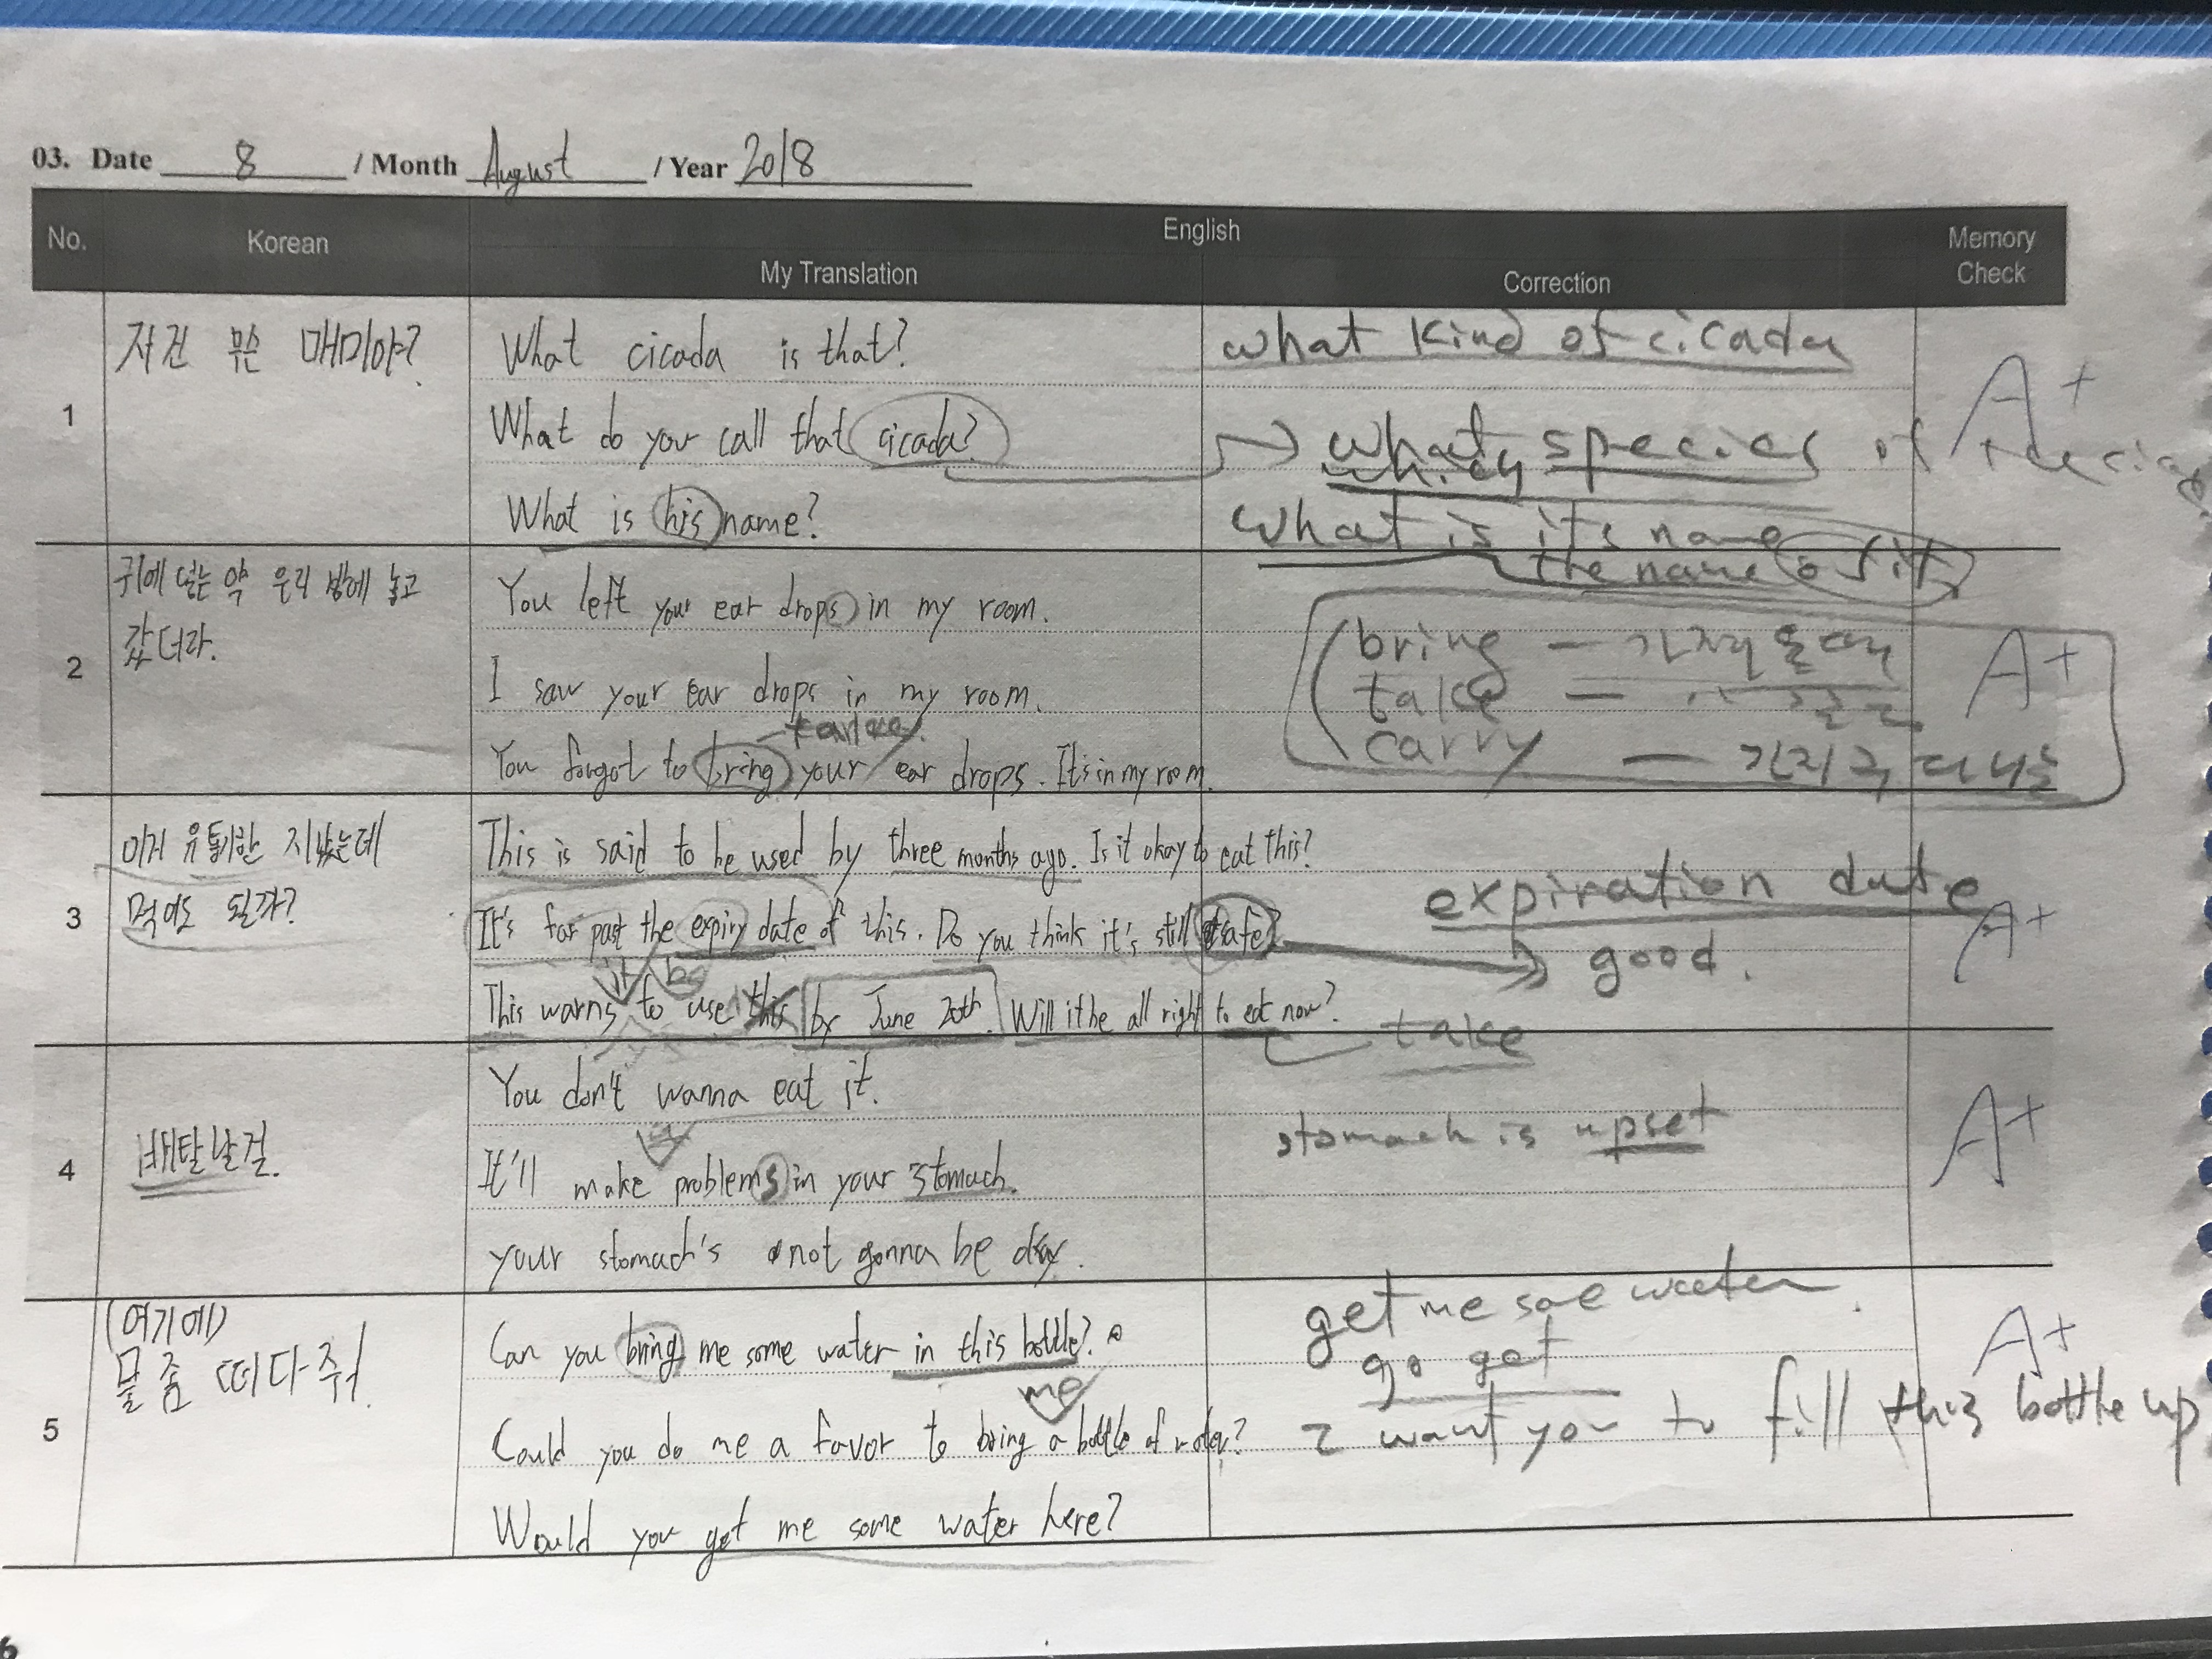 03. Date 8 / Month August / Year 2018
No. Korean English Memory Check
My Translation Correction
1
저건 무슨 매미야?
What cicada is that?
What do you call that cicada?
What is his name?
what kind of cicada
what species of
which
what is its name
the name of it
A+
2
귀에 넣는 약 우리 방에 놓고
갔더라.
You left your ear drops in my room.
I saw your ear drops in my room.
take
You forgot to bring your ear drops. It's in my room.
bring –
take –
carry –
A+
3
이거 유통기한 지났는데
먹어도 될까?
This is said to be used by three months ago. Is it okay to eat this?
It's far past the expiry date of this. Do you think it's still safe?
it be
This warns to use this by June 20th. Will it be all right to eat now?
expiration date
good.
take
A+
4
배탈날걸.
You don't wanna eat it.
It'll make problems in your stomach.
your stomach's not gonna be okay.
stomach is upset
A+
5
(여기에)
물 좀 떠다줘.
Can you bring me some water in this bottle?
me
Could you do me a favor to bring a bottle of water?
Would you get me some water here?
get me soe water.
go get
I want you to fill this bottle up
A+
6